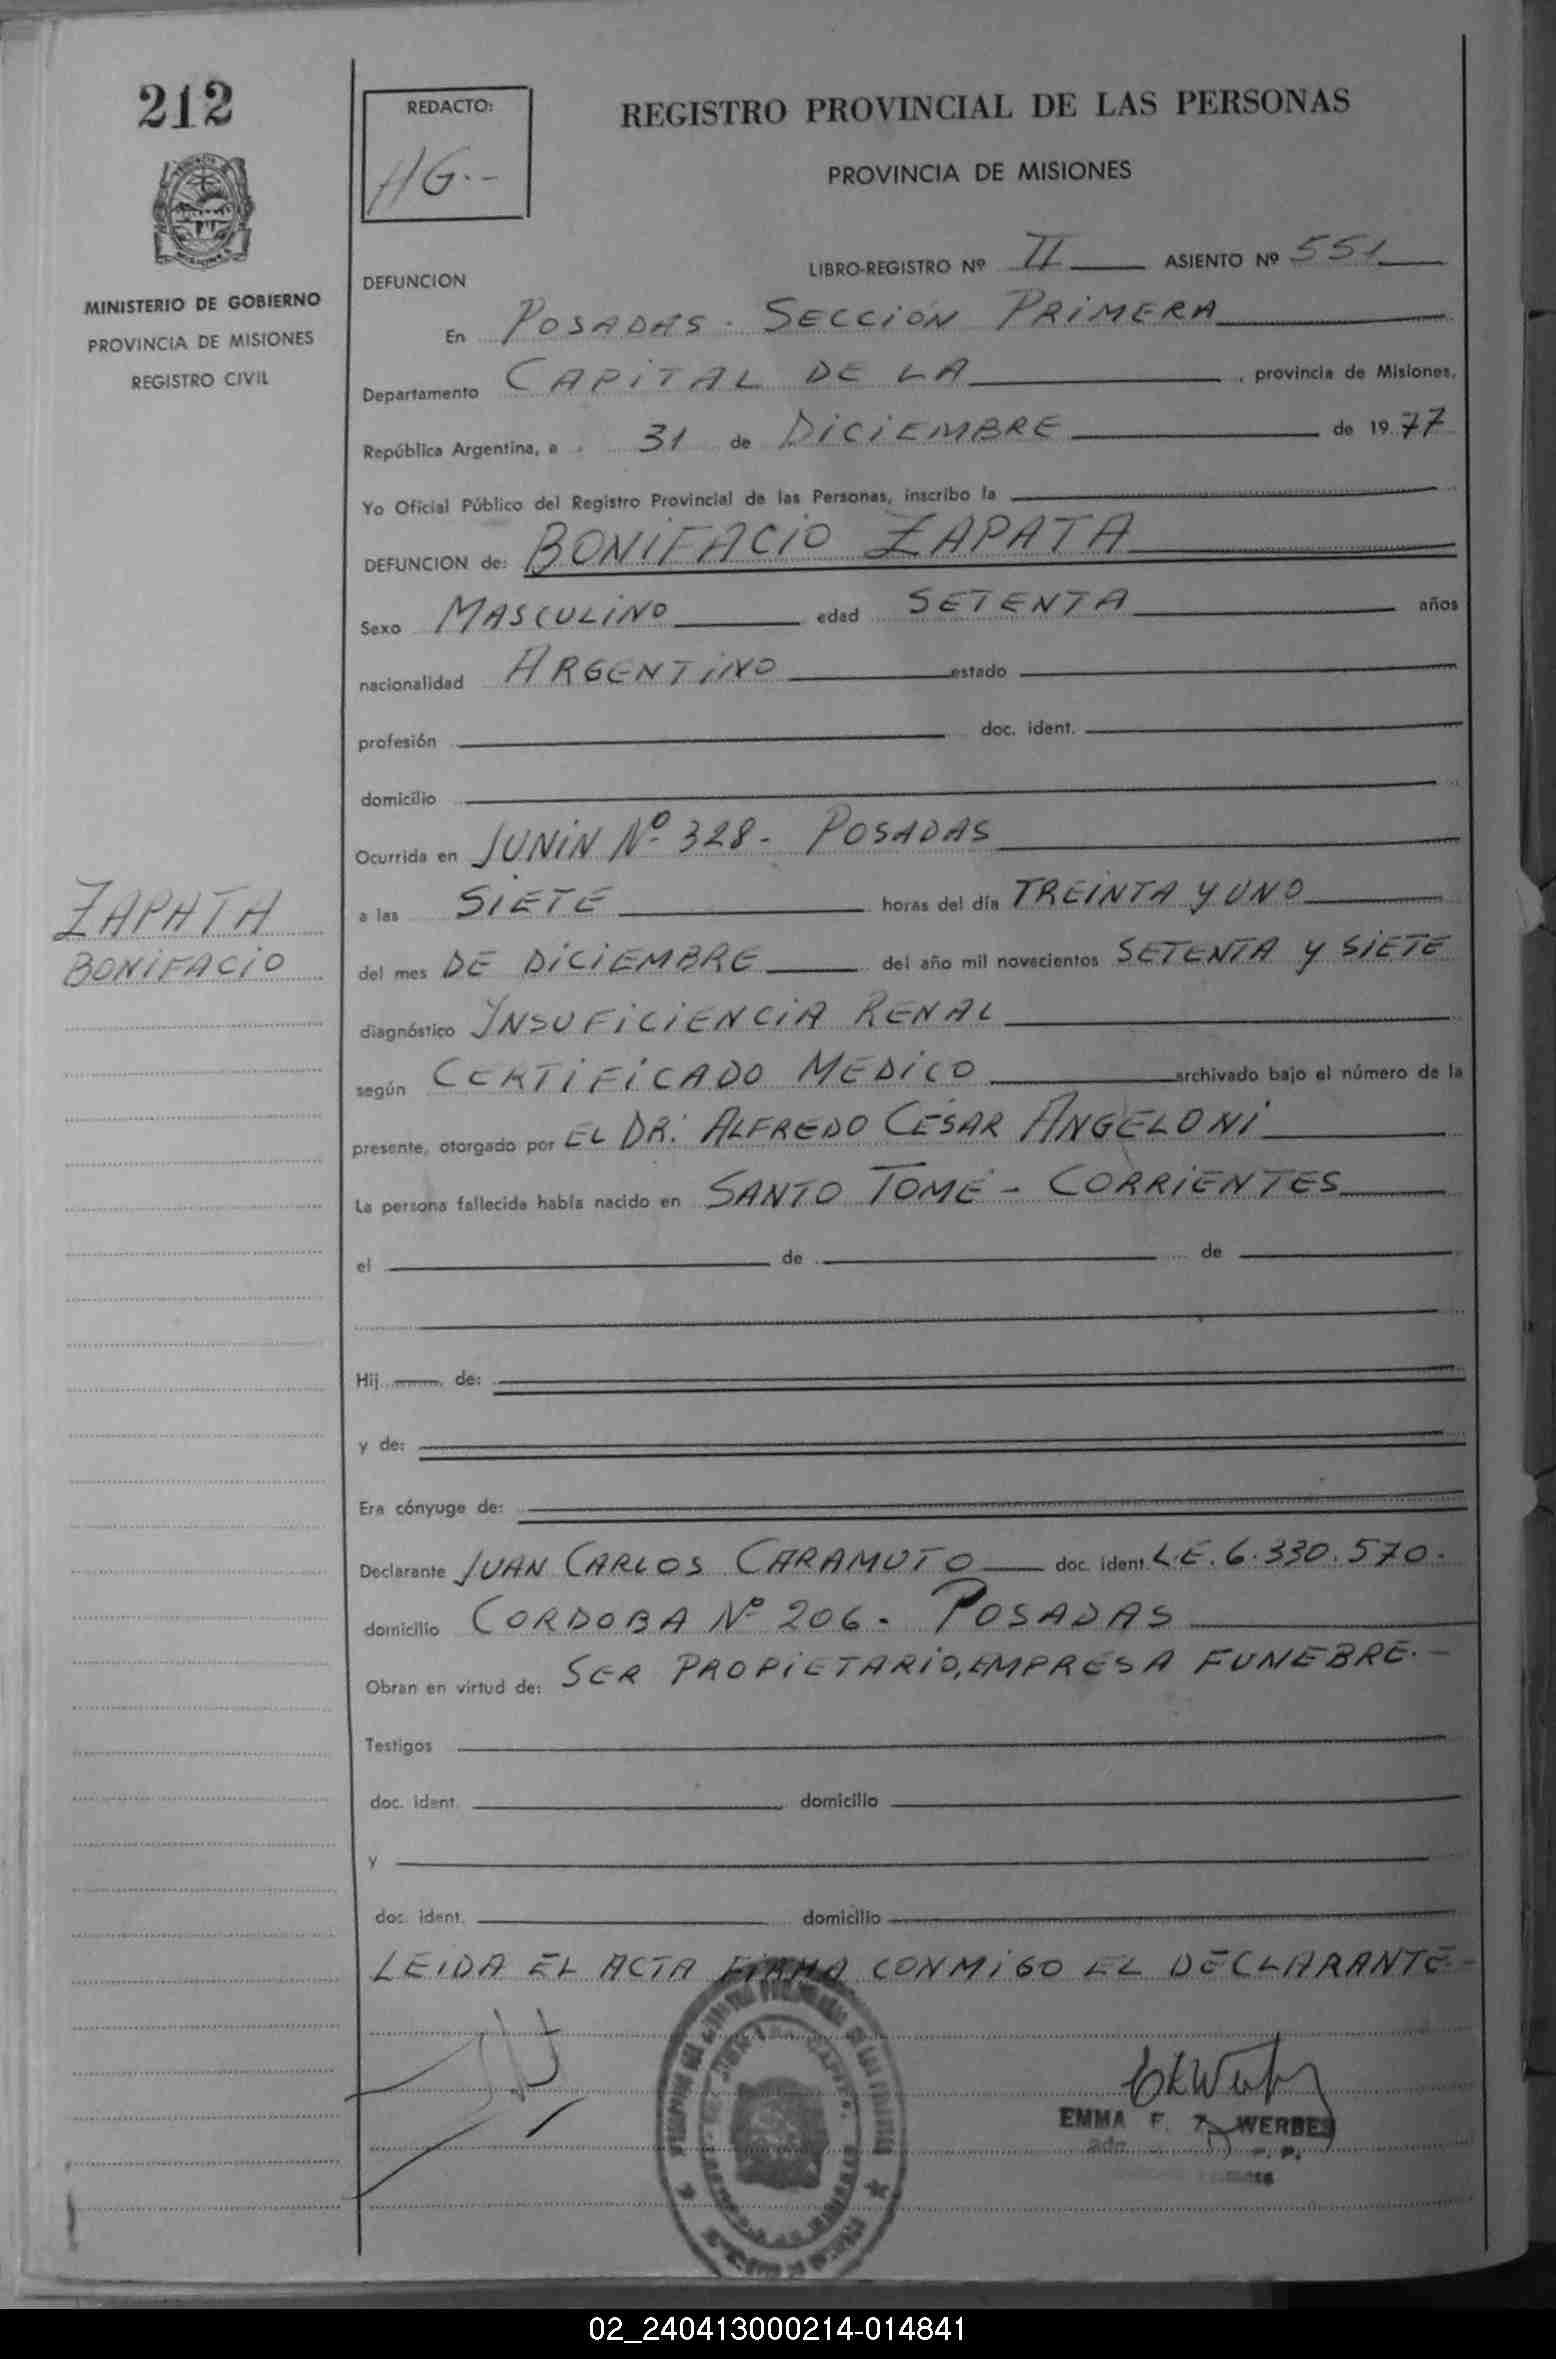 212
REDACTO:
HG.-
REGISTRO PROVINCIAL DE LAS PERSONAS
PROVINCIA DE MISIONES
MINISTERIO DE GOBIERNO
PROVINCIA DE MISIONES
REGISTRO CIVIL
LIBRO-REGISTRO Nº II ASIENTO Nº 551
DEFUNCION
En POSADAS. SECCIÓN PRIMERA
Departamento CAPITAL DE LA , provincia de Misiones,
República Argentina, a 31 de DICIEMBRE de 1977
Yo Oficial Público del Registro Provincial de las Personas, inscribo la
DEFUNCION de: BONIFACIO ZAPATA
Sexo MASCULINO edad SETENTA años
nacionalidad ARGENTINO estado
profesión doc. ident.
domicilio
Ocurrida en JUNIN Nº 328- POSADAS
ZAPATA
BONIFACIO
a las SIETE horas del día TREINTA Y UNO
del mes DE DICIEMBRE del año mil novecientos SETENTA Y SIETE
diagnóstico INSUFICIENCIA RENAL
según CERTIFICADO MEDICO archivado bajo el número de la
presente, otorgado por EL DR. ALFREDO CESAR ANGELONI
La persona fallecida había nacido en SANTO TOMÉ - CORRIENTES
el de de
Hij de:
y de:
Era cónyuge de:
Declarante JUAN CARLOS CARAMUTO doc. ident. L.E. 6.330.570.
domicilio CORDOBA Nº 206. POSADAS
Obran en virtud de: SER PROPIETARIO, EMPRESA FUNEBRE.-
Testigos
doc. ident. domicilio
y
doc. ident. domicilio
LEIDA EL ACTA FIRMA CONMIGO EL DECLARANTE.-
EMMA F. WERBES
02_240413000214-014841